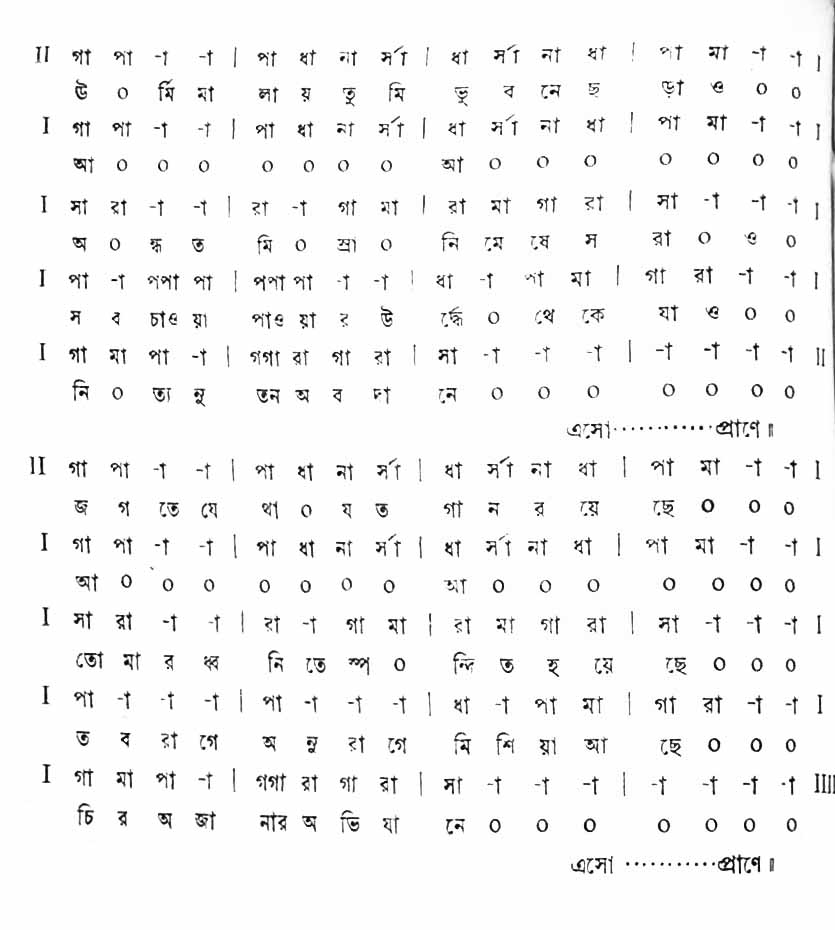 II গা পা -া -া | পা ধা না র্সা | ধা র্সা না ধা | পা মা -া -া I
ঊ ০ র্মি মা লা য় তু মি ভু ব নে ছ ড়া ও ০ ০
I গা পা -া -া | পা ধা না র্সা | ধা র্সা না ধা | পা মা -া -া I
আ ০ ০ ০ ০ ০ ০ ০ আ ০ ০ ০ ০ ০ ০ ০
I সা রা -া -া | রা -া গা মা | রা মা গা রা | সা -া -া -া I
অ ০ ন্ধ ত মি ০ স্রা ০ নি মে ষে স রা ০ ও ০
I পা -া পপা পা | পপা পা -া -া | ধা -া পা মা | গা রা -া -া I
স ব চাও য়া পাও য়া র ঊ র্দ্ধে ০ থে কে যা ও ০ ০
I গা মা পা -া | গগা রা গা রা | সা -া -া -া | -া -া -া -া II
নি ০ ত্য নূ তন অ ব দা নে ০ ০ ০ ০ ০ ০ ০
এসো············প্রাণে॥
II গা পা -া -া | পা ধা না র্সা | ধা র্সা না ধা | পা মা -া -া I
জ গ তে যে থা ০ য ত গা ন র য়ে ছে ০ ০ ০
I গা পা -া -া | পা ধা না র্সা | ধা র্সা না ধা | পা মা -া -া I
আ ০ ০ ০ ০ ০ ০ ০ আ ০ ০ ০ ০ ০ ০ ০
I সা রা -া -া | রা -া গা মা | রা মা গা রা | সা -া -া -া I
তো মা র ধ্ব নি তে স্প ০ ন্দি ত হ য়ে ছে ০ ০ ০
I পা -া -া -া | পা -া -া -া | ধা -া পা মা | গা রা -া -া I
ত ব রা গে অ নু রা গে মি শি য়া আ ছে ০ ০ ০
I গা মা পা -া | গগা রা গা রা | সা -া -া -া | -া -া -া -া IIII
চি র অ জা নার অ ভি যা নে ০ ০ ০ ০ ০ ০ ০
এসো ············প্রাণে॥